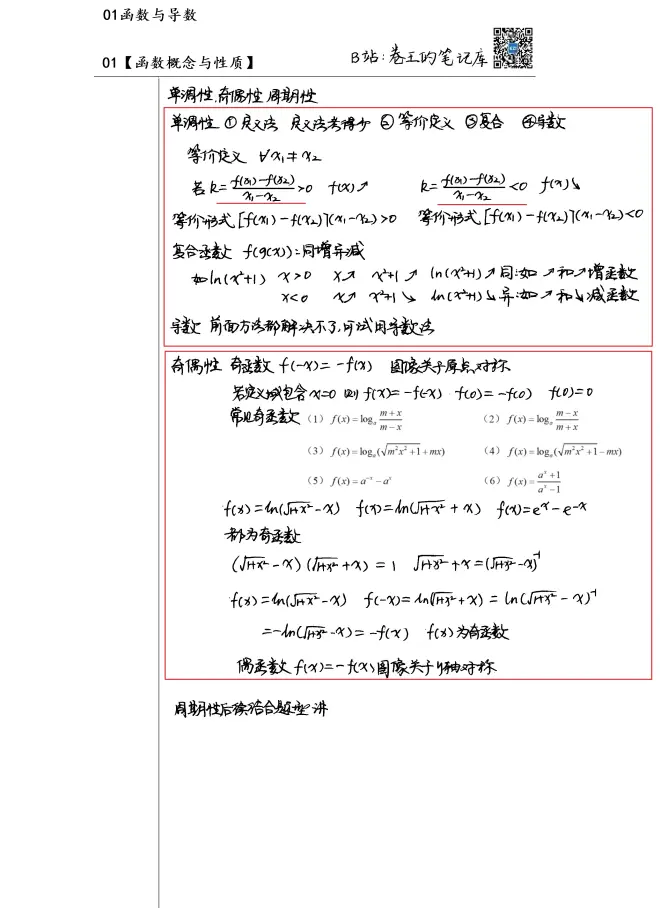 01函数与导数
01【函数概念与性质】
B站:卷王的笔记库
单调性 奇偶性 周期性
单调性 ①定义法 定义法考得少 ②等价定义 ③复合 ④导数
等价定义 ∀x₁≠x₂
若k=\frac{f(x₁)-f(x₂)}{x₁-x₂}>0 f(x)↗ k=\frac{f(x₁)-f(x₂)}{x₁-x₂}<0 f(x)↘
等价形式[f(x₁)-f(x₂)](x₁-x₂)>0 等价形式[f(x₁)-f(x₂)](x₁-x₂)<0
复合函数 f(g(x)):同增异减
如ln(x²+1) x>0 x↗ x²+1↗ ln(x²+1)↗同:如↗和↗增函数
x<0 x↗ x²+1↘ ln(x²+1)↘异:如↗和↘减函数
导数 前面方法都解决不了,可试用导数法
奇偶性 奇函数 f(-x)=-f(x) 图像关于原点对称
若定义域包含x=0 则f(x)=-f(-x) f(0)=-f(0) f(0)=0
常见奇函数 (1) f(x)=logₐ\frac{m+x}{m-x} (2) f(x)=logₐ\frac{m-x}{m+x}
(3) f(x)=logₐ(√(m²x²+1)+mx) (4) f(x)=logₐ(√(m²x²+1)-mx)
(5) f(x)=a⁻ˣ-aˣ (6) f(x)=\frac{aˣ+1}{aˣ-1}
f(x)=ln(√(1+x²)-x) f(x)=ln(√(1+x²)+x) f(x)=eˣ-e⁻ˣ
都为奇函数
(√(1+x²)-x)(√(1+x²)+x)=1 √(1+x²)+x=(√(1+x²)-x)⁻¹
f(x)=ln(√(1+x²)-x) f(-x)=ln(√(1+x²)+x)=ln(√(1+x²)-x)⁻¹
=-ln(√(1+x²)-x)=-f(x) f(x)为奇函数
偶函数 f(x)=-f(x)图像关于y轴对称
周期性后续结合题型讲